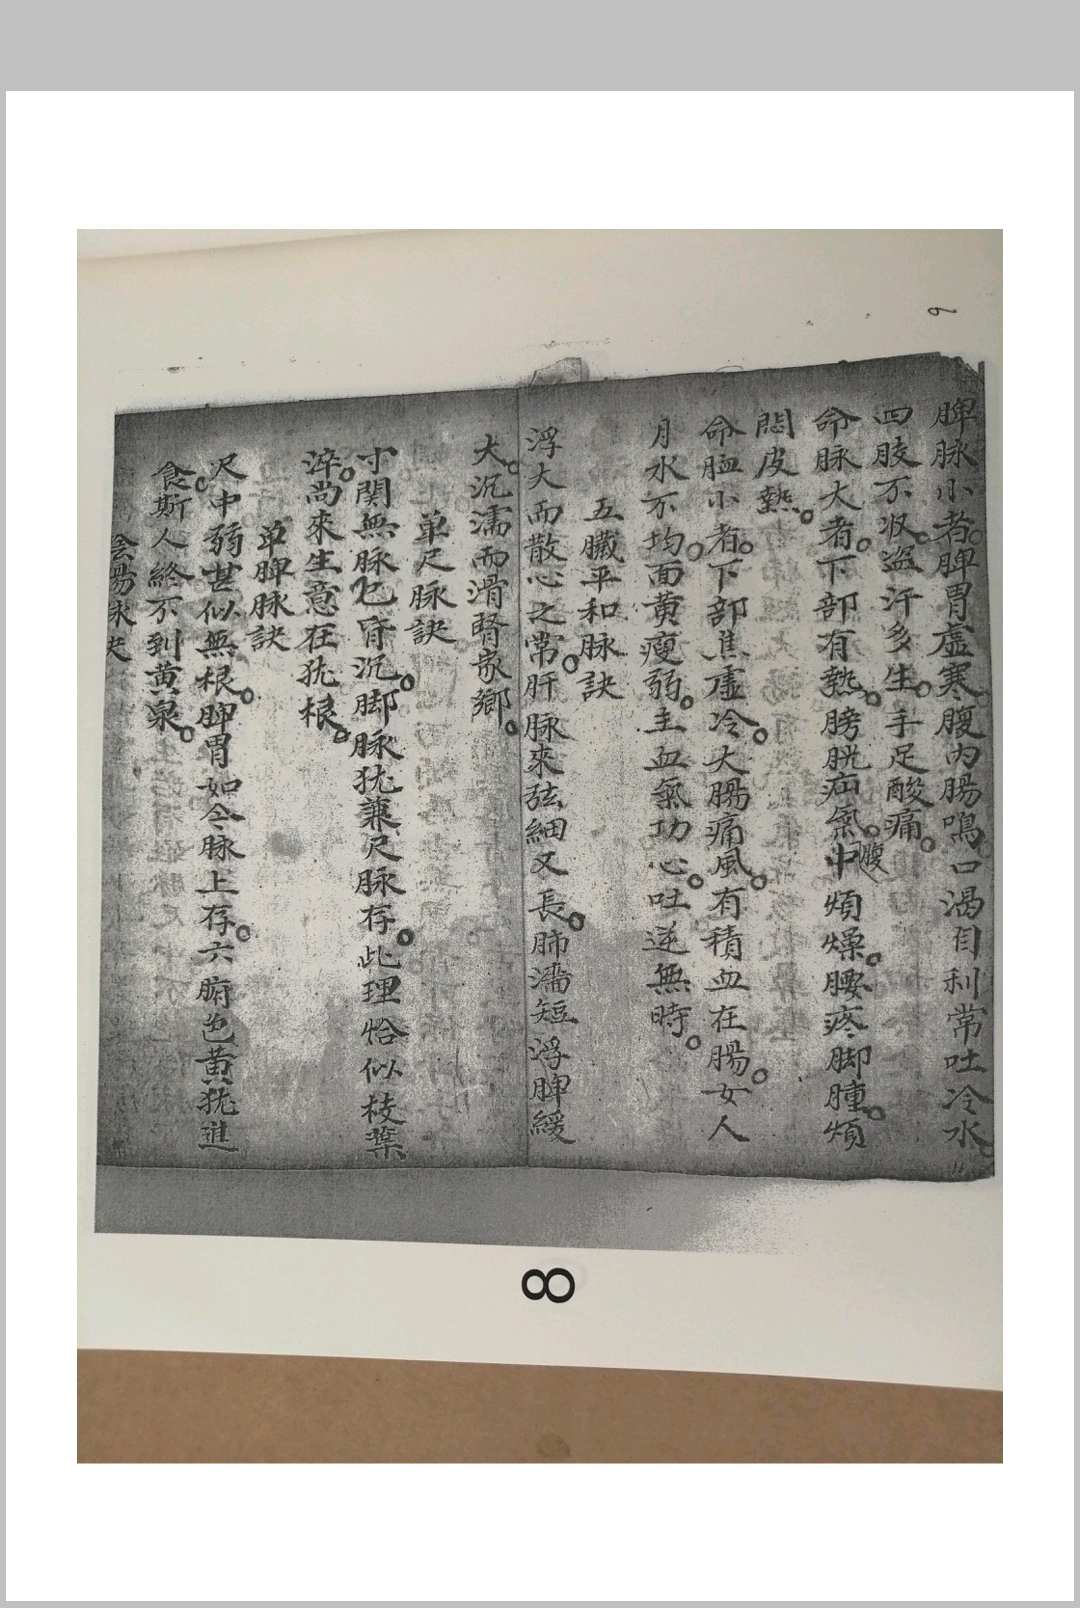 脾脉小者脾胃虛寒腹內腸鳴口渴自利常吐冷水
四肢不収盗汗多生手足酸痛
命脉大者下部有熱膀胱疝氣中腹煩燥腰疼脚腫煩
悶皮熱
命脉小者下部焦虛冷大腸痛風有積血在腸女人
月水不均面黃瘦弱主血氣功心吐逆無時
五臟平和脉訣
浮大而散心之常肝脉來弦細又長肺濇短浮脾緩
大沉濡而滑腎家鄉
单尺脉訣
寸関無脉乞肓沉脚脉犹兼尺脉存此理恰似枝葉
淬尚來生意在犹根
单脾脉訣
尺中弱甚似無根脾胃如今脉上存六腑色黃犹進
食斯人終不到黃泉
陰陽
6
8